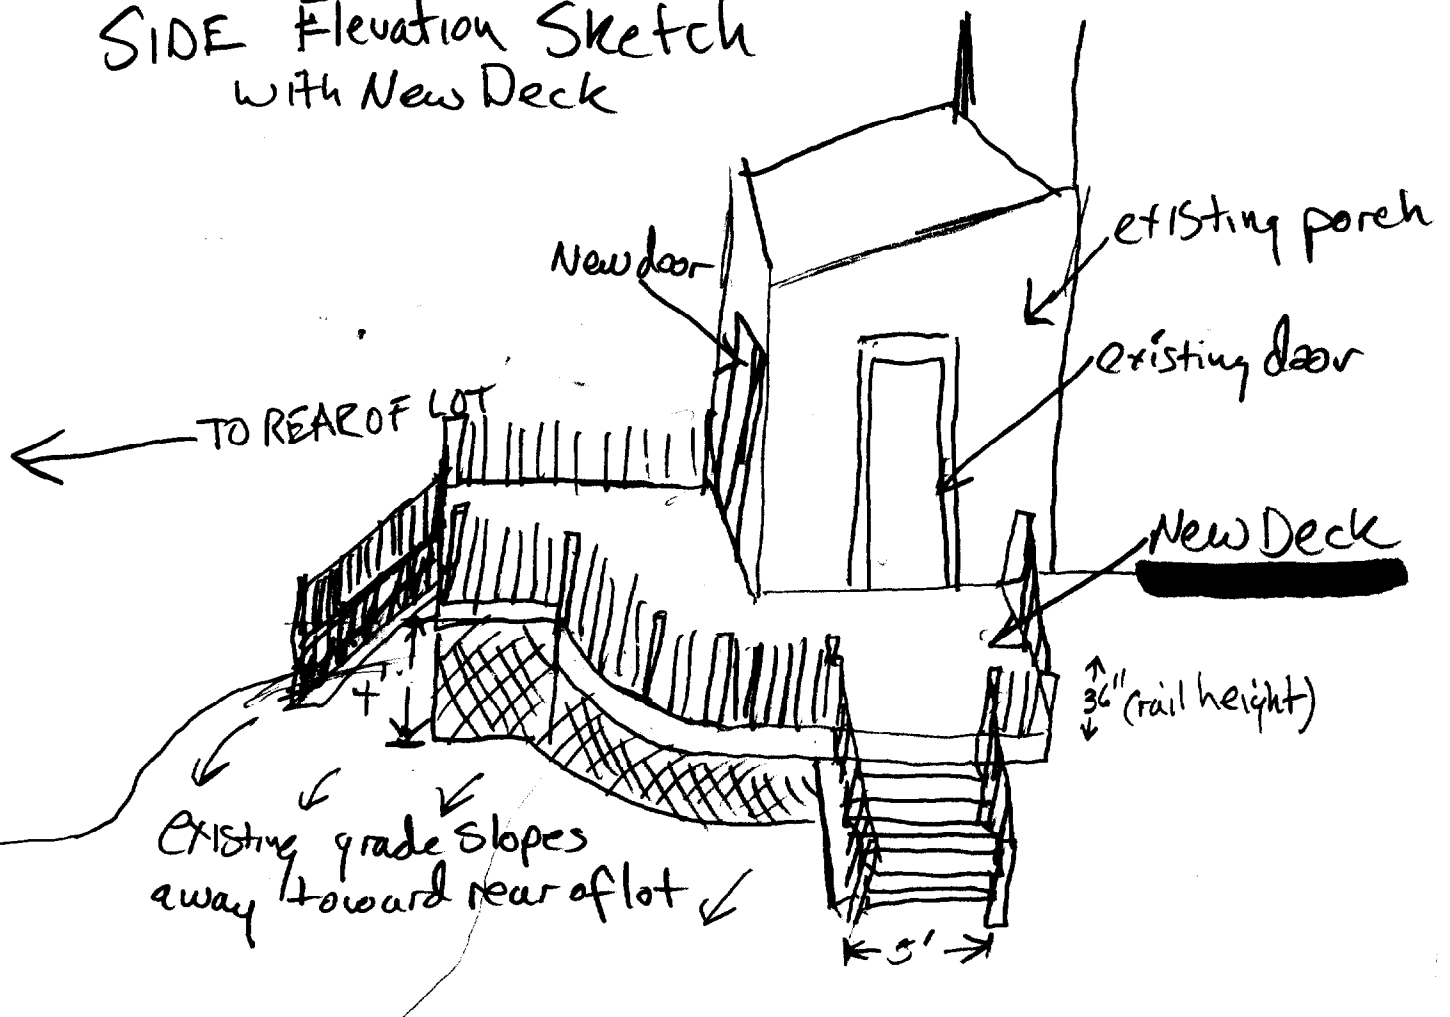 SIDE Elevation Sketch
with New Deck
existing porch
New door
existing door
TO REAR OF LOT
New Deck
36" (rail height)
4'
existing grade slopes
away toward rear of lot